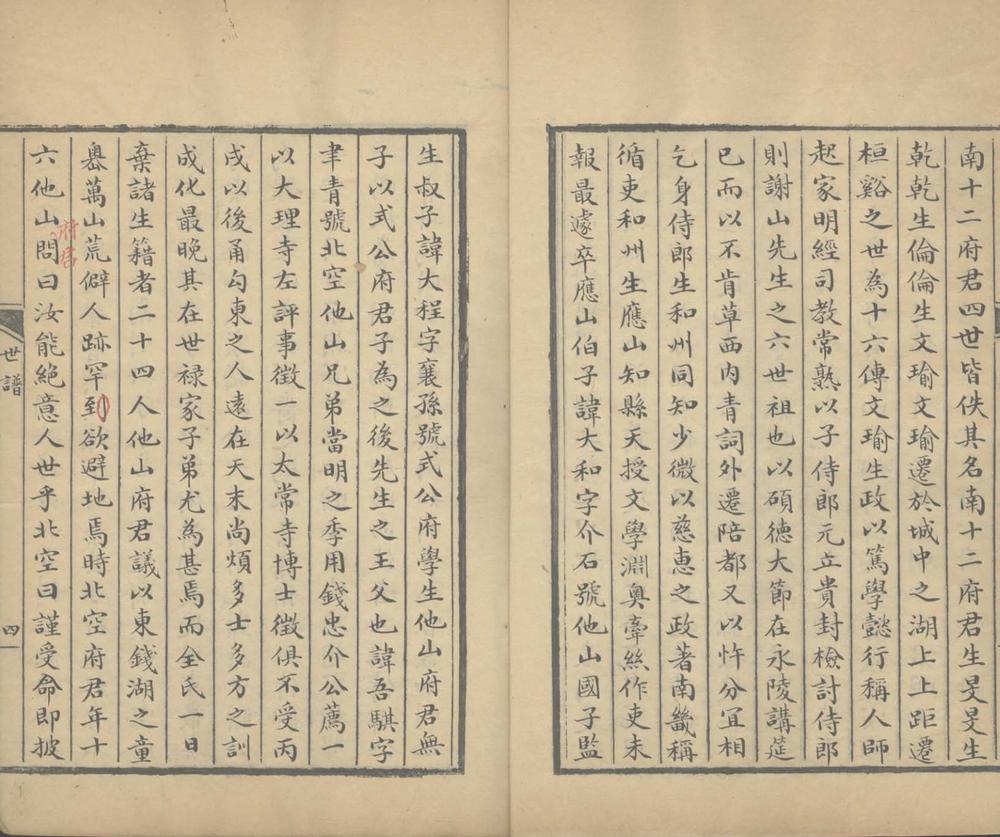 南十二府君四世皆佚其名南十二府君生旻旻生
乾乾生倫倫生文瑜文瑜遷於城中之湖上上距遷
桓谿之世為十六傳文瑜生政以篤學懿行稱人師
起家明經司教常熟以子侍郎元立貴封檢討侍郎
則謝山先生之六世祖也以碩德大節在永陵講筵
已而以不肯草西內青詞外遷陪都又以忤分宜相
乞身侍郎生和州同知少微以慈惠之政著南畿稱
循吏和州生應山知縣天授文學淵奧牽絲作吏未
報最遽卒應山伯子諱大和字介石號他山國子監
生叔子諱大程字襄孫號式公府學生他山府君無
子以式公府君子為之後先生之王父也諱吾騏字
聿青號北空他山兄弟當明之季用錢忠介公薦一
以大理寺左評事徵一以太常寺博士徵俱不受丙
戌以後甬勾東之人遠在天末尚煩多士多方之訓
成化最晚其在世祿家子弟尤為甚焉而全氏一日
棄諸生籍者二十四人他山府君議以東錢湖之童
嶴萬山荒僻人跡罕到欲避地焉時北空府君年十
六他山問曰汝能絕意人世乎北空曰謹受命即披
府君
世譜
四